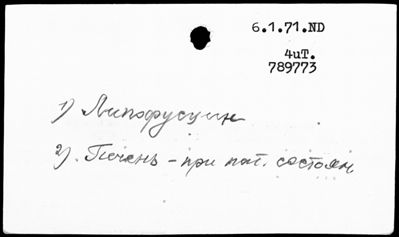 6.1.71.ND
4uT.
789773
1) Липофусцин
2). Печень - при пат. состоян